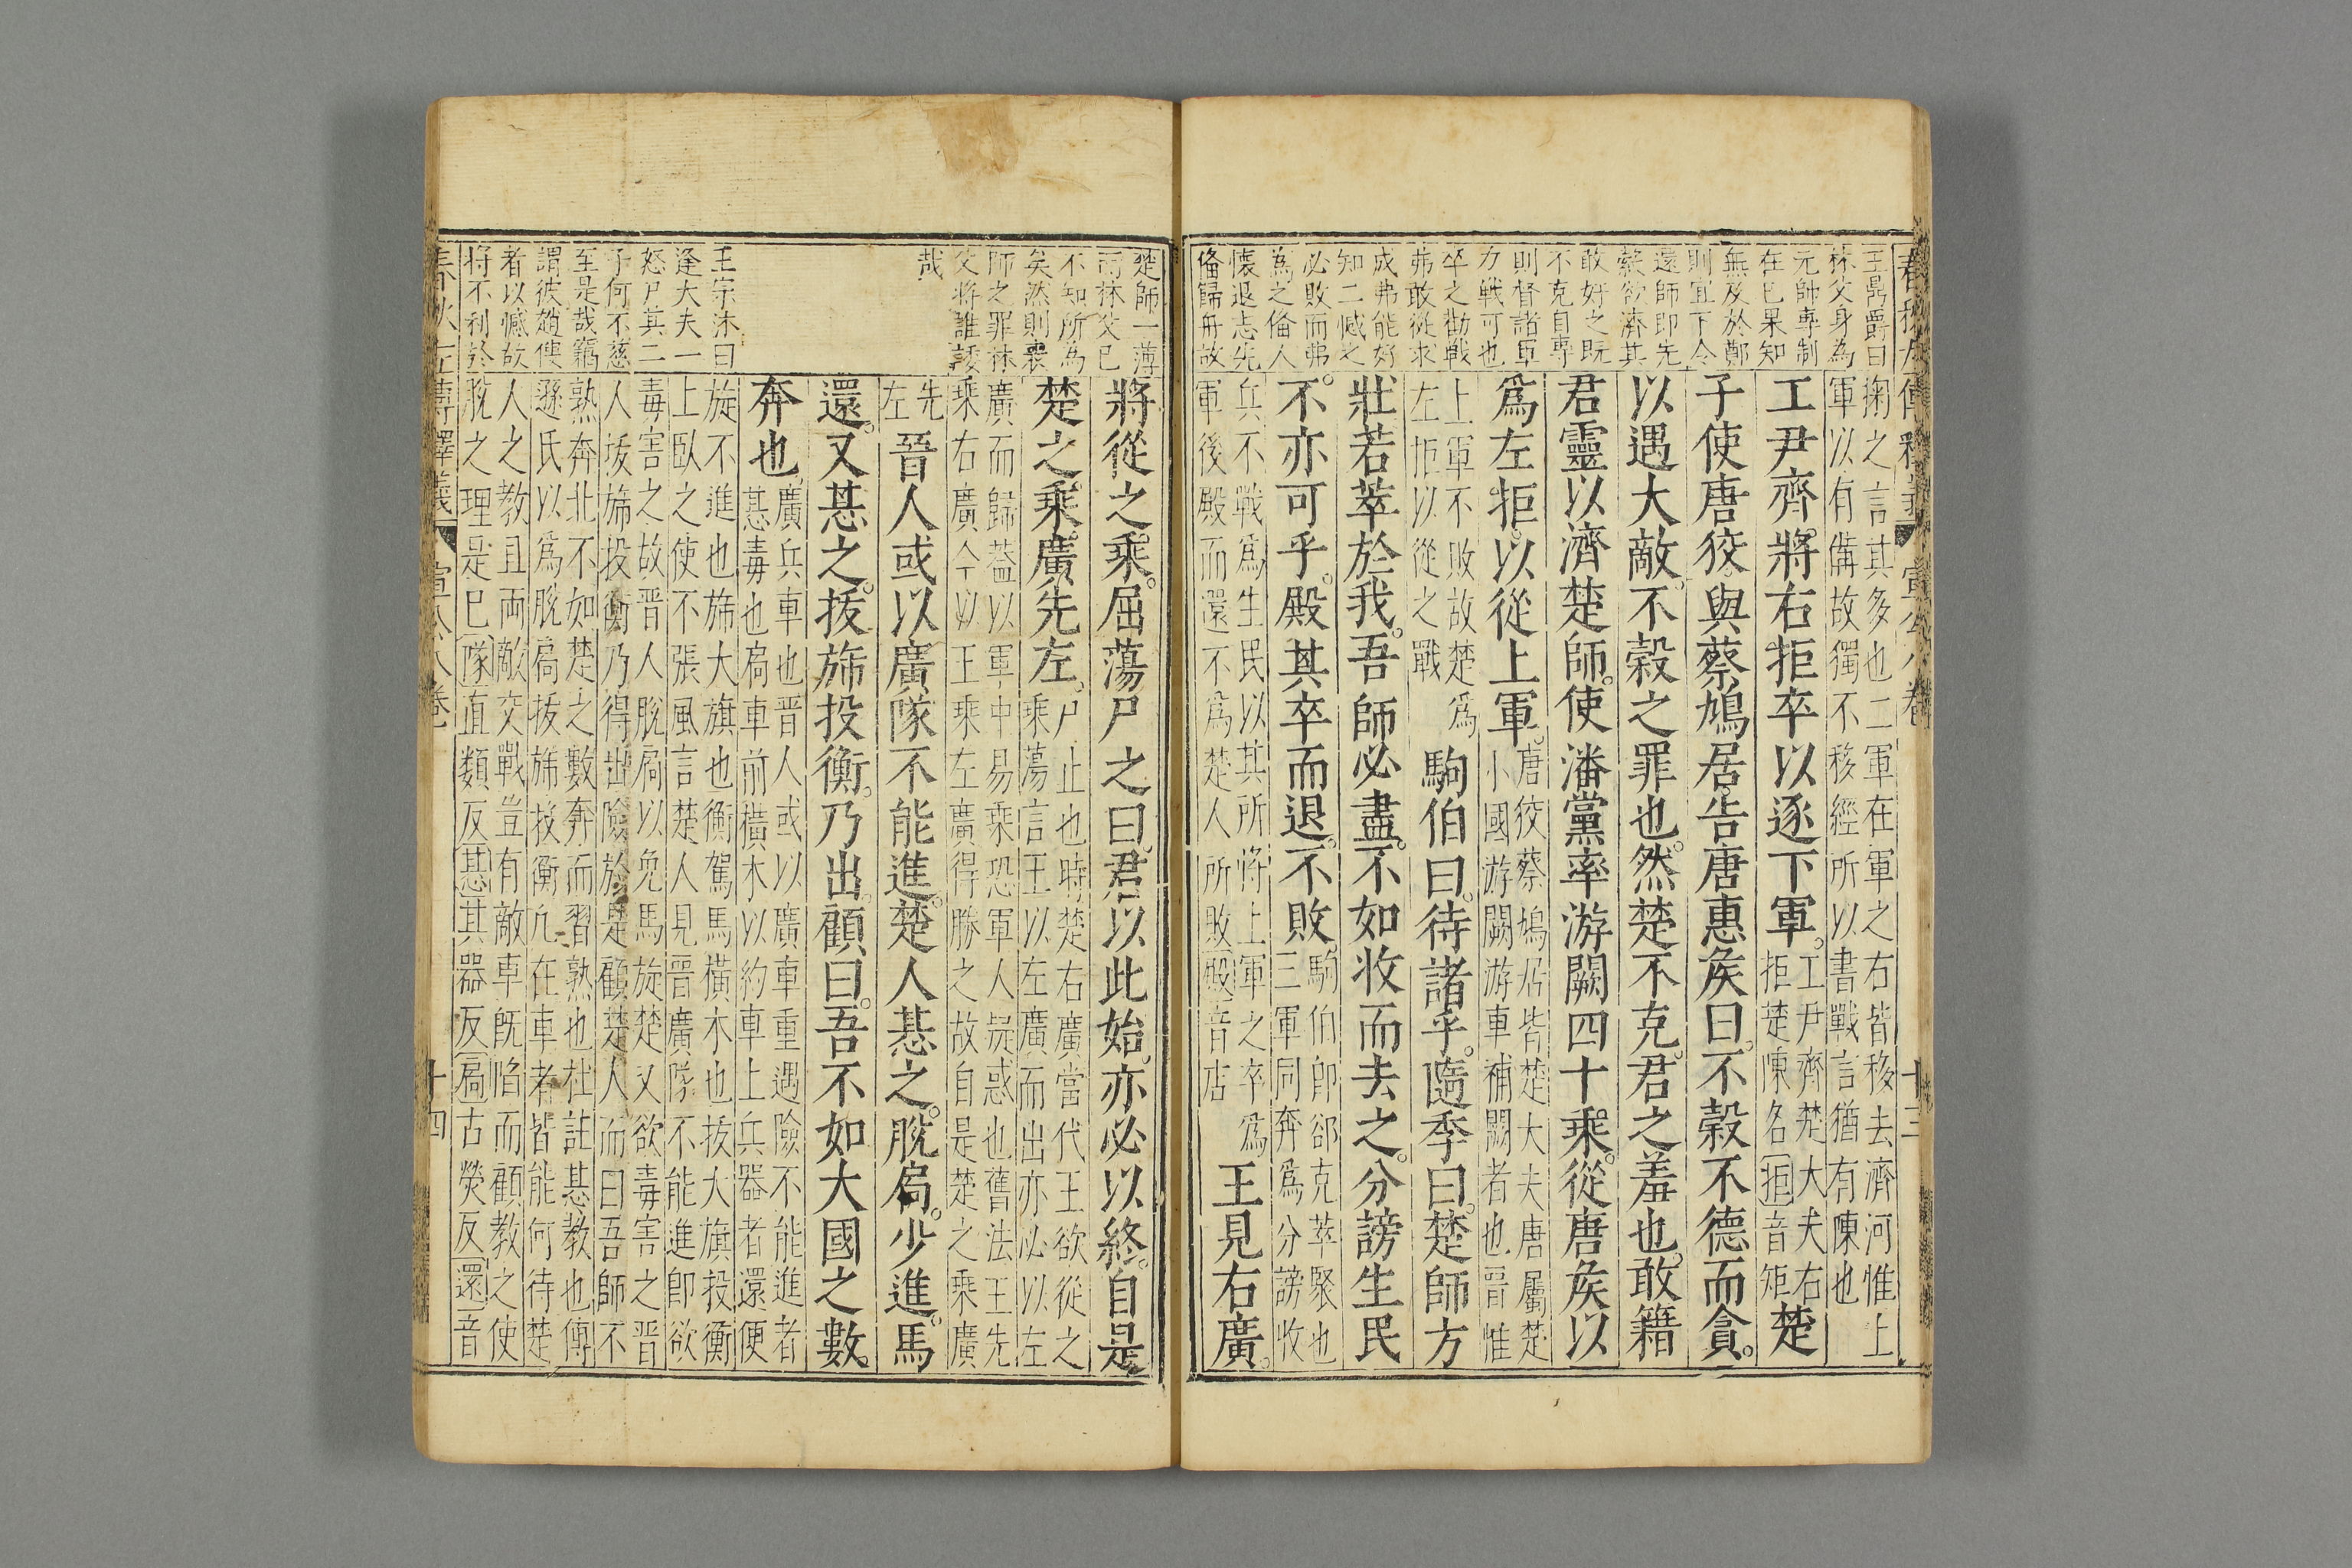 春秋左傳釋義 宣公八卷 十三
王鼎爵曰
林父身為
元帥專制
在已果知
無及於鄭
則宜下令
還師即先
縠欲濟其
敢好之既
不克自專
則督諸軍
力戰可也
卒之勸戰
弗敢從求
成弗能好
知二憾之
必敗而弗
為之偹人
懷退志先
偹歸舟故
掬之言其多也二軍在軍之右皆移去濟河惟上
軍以有備故獨不移經所以書戰言猶有陳也
工尹齊。將右拒卒以逐下軍。工尹齊楚大夫右拒楚陳名拒音矩楚
子使唐狡。與蔡鳩居告唐惠矦曰。不糓不德而貪。
以遇大敵。不糓之罪也。然楚不克。君之羞也。敢籍
君靈以濟楚師。使潘黨率游闕四十乘。從唐矦以
爲左拒。以從上軍。唐狡蔡鳩居皆楚大夫唐屬楚小國游闕游車補闕者也晉惟
上軍不敗故楚爲左拒以從之戰駒伯曰。待諸乎。隨季曰。楚師方
壯若萃於我。吾師必盡。不如收而去之。分謗生民
不。亦可乎。殿其卒而退。不敗。駒伯卽郤克萃聚也三軍同奔爲分謗收
兵不戰爲生民以其所將上軍之卒爲軍後殿而還不爲楚人所敗殿音店王見右廣。
楚師一薄
而林父已
不知所為
矣然則喪
師之罪林
父將誰諉
哉
王宗沐曰
逢大夫一
怒尸其二
子何不慈
至是哉竊
謂彼趙傁
者以憾故
將不利於
將從之乘。屈蕩尸之曰。君以此始。亦必以終。自是
楚之乘。廣先左。尸止也時楚右廣當代王欲從之乘蕩言王以左廣而出亦必以左
廣而歸葢以軍中易乘恐軍人疑惑也舊法王先乘右廣今以王乘左廣得勝之故自是楚之乘廣
先左晉人或以廣隊不能進。楚人惎之。脫扃。少進。馬
還。又惎之。拔斾投衡。乃出。顧曰。吾不如大國之數。
奔也。廣兵車也晉人或以廣車重遇險不能進者惎毒也扃車前橫木以約車上兵器者還便
旋不進也斾大旗也衡駕馬橫木也拔大旗投衡上臥之使不張風言楚人見晉廣隊不能進卽欲
毒害之故晉人脫扃以免馬旋楚又欲毒害之晉人拔斾投衡乃得出險於是顧楚人而曰吾師不
熟奔北不如楚之數奔而習熟也杜註惎教也傅遜氏以爲脫扃拔斾投衡凡在車者皆能何待楚
人之教且兩敵交戰豈有敵車旣陷而顧教之使脫之理是已隊直類反惎其器反扃古熒反還音
春秋左傳釋義 宣公八卷 十四